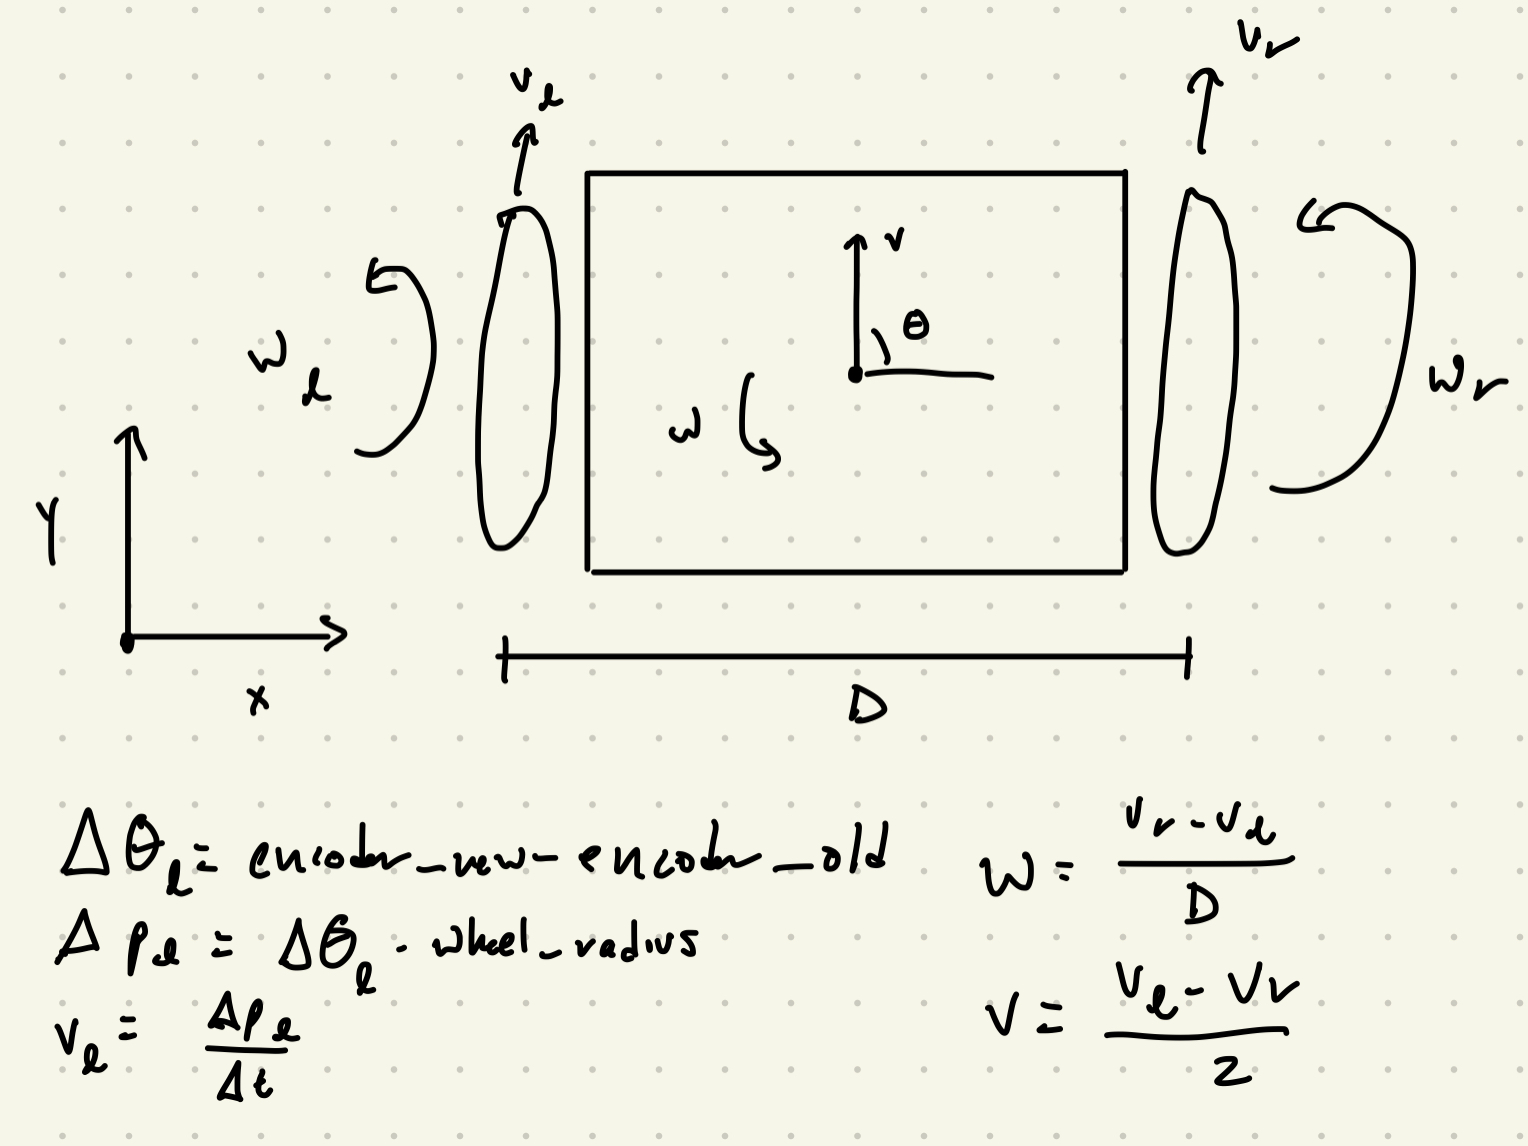 v_r
v_l
v
θ
w_l
w_r
w
Y
x
D
Δθ_l = encoder_new - encoder_old
Δp_l = Δθ_l · wheel_radius
v_l = Δp_l / Δt
w = (v_r - v_l) / D
v = (v_l - v_r) / 2